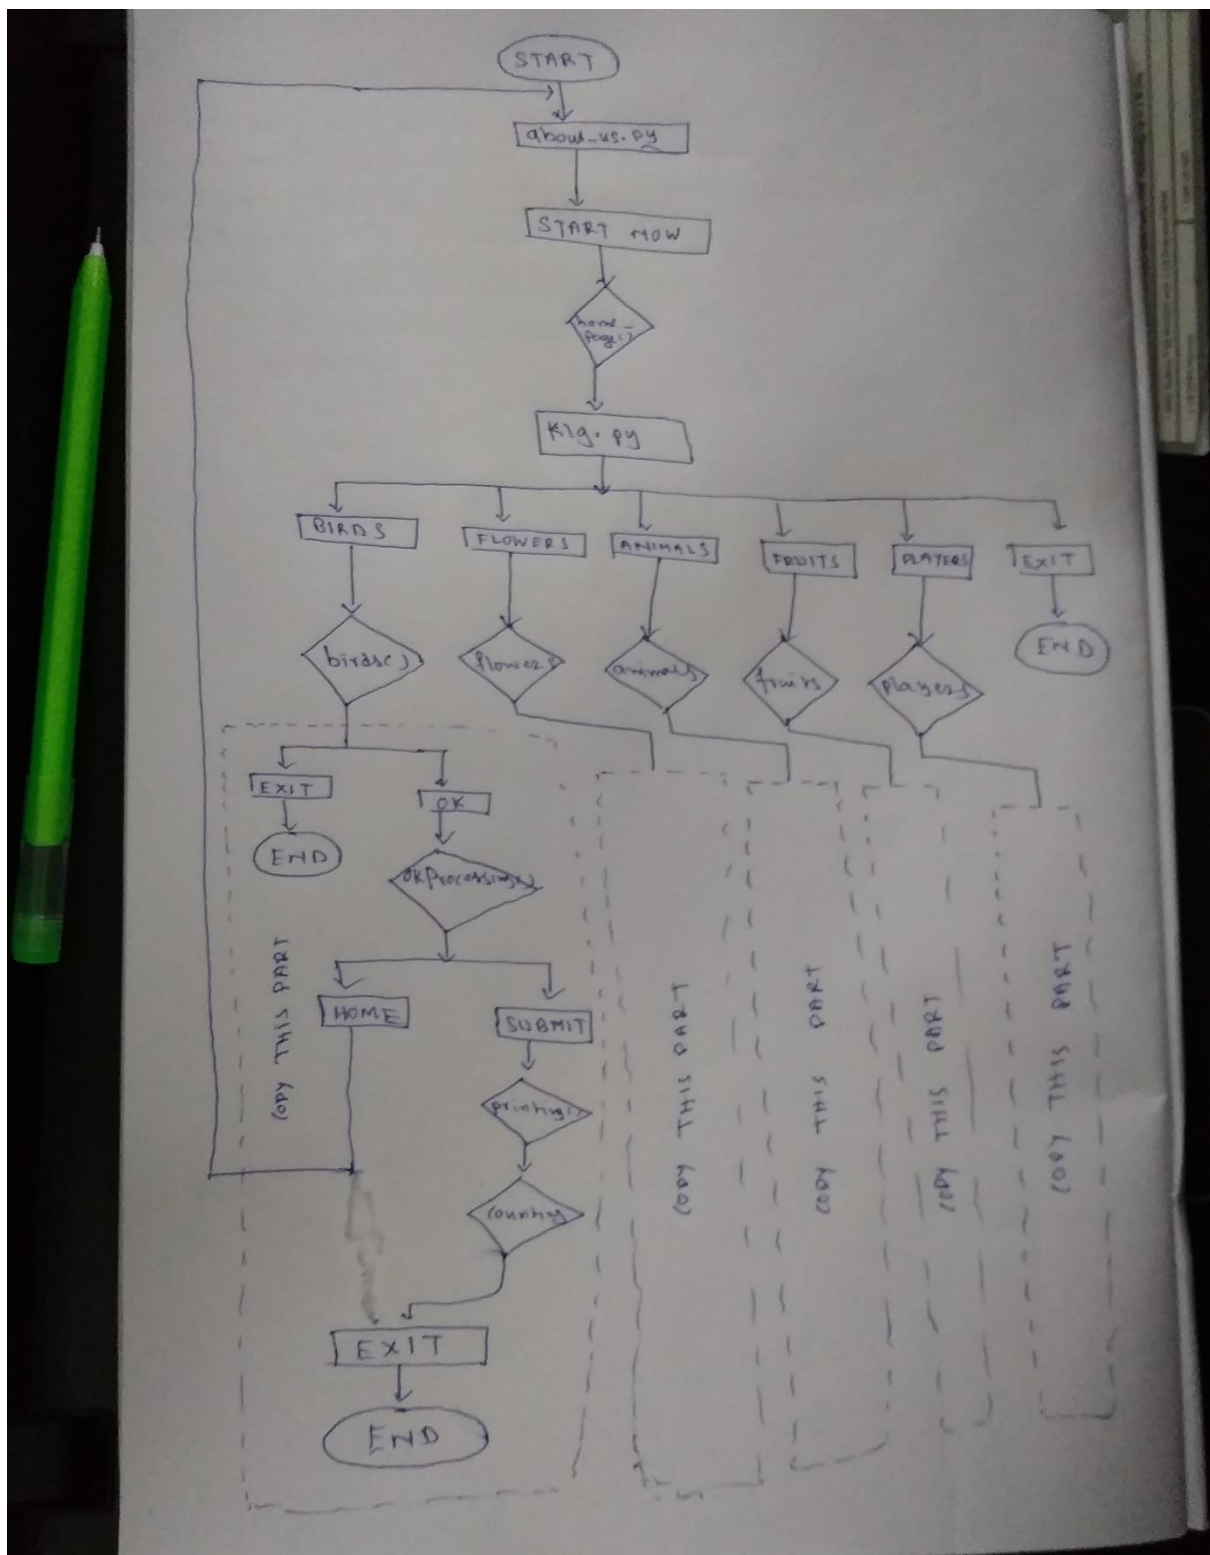 START
about_us.py
START NOW
home_
page()
Klg.py
BIRDS
FLOWERS
ANIMALS
FRUITS
PLAYERS
EXIT
birds()
flowers
animals
fruits
players
END
EXIT
OK
END
okprocessing()
HOME
SUBMIT
printing()
counting
EXIT
END
COPY THIS PART
COPY THIS PART
COPY THIS PART
COPY THIS PART
COPY THIS PART